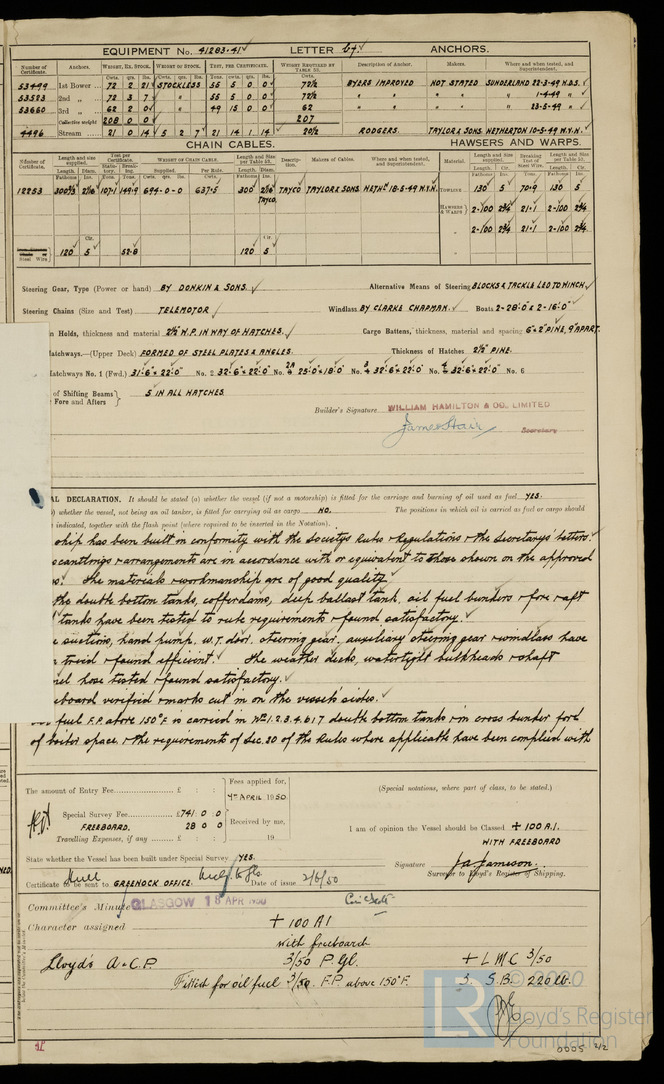 EQUIPMENT No. 41283.41 LETTER bt. ANCHORS.
Number of Certificate. Anchors. Weight, Ex. Stock. Weight of Stock. Test, per Certificate. Weight Required by Table 53. Description of Anchor. Makers. Where and when tested, and Superintendent.
Cwts. qrs. lbs. Cwts. qrs. lbs. Tons. cwts. qrs. lbs. Cwts.
53499 1st Bower 72 2 21 STOCKLESS 55 5 0 0 72½ BYERS IMPROVED NOT STATED SUNDERLAND 22-3-49 N.D.S.
53523 2nd „ 72 3 7 „ 55 5 0 0 72½ „ „ „ 1-4-49 „
53660 3rd „ 62 2 0 „ 49 15 0 0 62 „ „ „ 23-5-49 „
Collective weight 208 0 0 207
4496 Stream 21 0 14 5 2 7 21 14 1 14 20½ RODGERS. TAYLOR & SONS. NETHERTON 10-5-49 M.Y.N.
CHAIN CABLES. HAWSERS AND WARPS.
Number of Certificate. Length and size supplied. Test per Certificate. Weight of Chain Cable. Length and Size per Table 53. Description. Makers of Cables. Where and when tested, and Superintendent. Material. Length and size supplied. Breaking Test of Steel Wire. Length and size per Table 53.
12253 300 2 1/16 107.1 149.9 694-0-0 637.5 300 2 1/16 TAYCO TAYCO TAYLOR & SONS. NETHN 18-5-49 M.Y.N. Towline 130 5 70.9 130 5
Hawsers & Warps 2-100 2¾ 21.1 2-100 2¾
„ 2-100 2¾ 21.1 2-100 2¾
Steel Wire 120 5 52.8 120 5
Steering Gear, Type (Power or hand) BY DONKIN & SONS. Alternative Means of Steering BLOCKS & TACKLE LED TO WINCH
Steering Chains (Size and Test) TELEMOTOR Windlass BY CLARKE CHAPMAN. Boats 2-28'.0" & 2-16'.0"
n Holds, thickness and material 2½" W.P. IN WAY OF HATCHES. Cargo Battens, thickness, material and spacing 6" x 2" PINE, 9" APART.
atchways.—(Upper Deck) FORMED OF STEEL PLATES & ANGLES. Thickness of Hatches 2½" PINE.
atchways No. 1 (Fwd.) 31'.6" x 22'.0" No. 2 32'.6" x 22'.0" No. 2A 25'.0" x 18'.0" No. 3 32'.6" x 22'.0" No. 4 32'.6" x 22'.0" No. 6
of Shifting Beams 5 IN ALL HATCHES.
Fore and Afters
Builder's Signature WILLIAM HAMILTON & CO. LIMITED
James Stair
Secretary
AL DECLARATION. It should be stated (a) whether the vessel (if not a motorship) is fitted for the carriage and burning of oil used as fuel YES.
) whether the vessel, not being an oil tanker, is fitted for carrying oil as cargo NO. The positions in which oil is carried as fuel or cargo should
indicated, together with the flash point (where required to be inserted in the Notation).
ship has been built in conformity with the Society's Rules & Regulations & the Secretary's letters.
scantlings & arrangements are in accordance with or equivalent to those shown on the approved
s. The materials & workmanship are of good quality
the double bottom tanks, cofferdams, deep ballast tank, oil fuel bunkers & fore & aft
tanks have been tested to rule requirements & found satisfactory.
suctions, hand pump, W.T. door, steering gear, auxiliary steering gear & windlass have
tried & found efficient. The weather decks, watertight bulkheads & shaft
nel hose tested & found satisfactory.
eboard verified & marks cut in on the vessel's sides.
fuel F.P. above 150°F. is carried in Nos 1.2.3.4.6.&.7 double bottom tanks & in cross bunker ford
of boiler space & the requirements of Sec. 20 of the Rules where applicable have been complied with
The amount of Entry Fee £ : : Fees applied for,
4TH APRIL 1950.
Special Survey Fee £741 : 0 : 0
FREEBOARD. 28 0 0 Received by me,
Travelling Expenses, if any £ : : 19
(Special notations, where part of class, to be stated.)
I am of opinion the Vessel should be Classed + 100 A.1.
WITH FREEBOARD
State whether the Vessel has been built under Special Survey YES.
Signature J.A. Jameson.
Surveyor to Lloyd's Register of Shipping.
Certificate to be sent to GREENOCK OFFICE. Date of issue 2/6/50
Committee's Minute GLASGOW 18 APR 1950
Character assigned + 100 A1
with freeboard
Lloyd's A & C.P. 3/50 P. Gl. + L M C 3/50
Fitted for oil fuel 3/50. F.P. above 150°F. 3. S.B. 220 lb.
LR
© 2020
Lloyd's Register
Foundation
0005 2/2